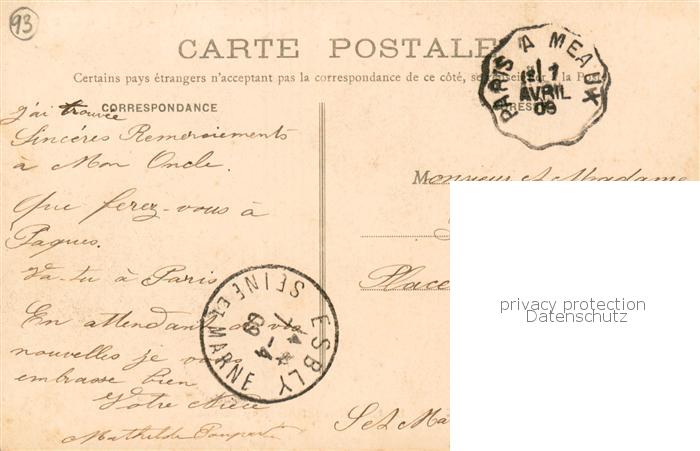 93
CARTE POSTALE
Certains pays étrangers n'acceptant pas la correspondance de ce côté, se renseigner à la Poste
CORRESPONDANCE
PARIS A MEAUX
7
AVRIL
09
j'ai trouvée
Sincères Remerciements
à Mon Oncle.
Que ferez-vous à
Paques.
Va-tu à Paris
En attendant de vos
nouvelles je vous
embrasse bien
Votre Nièce
Mathilde
Monsieur et Madame
Place
ESBLY
7-4
09
SEINE ET MARNE
privacy protection
Datenschutz